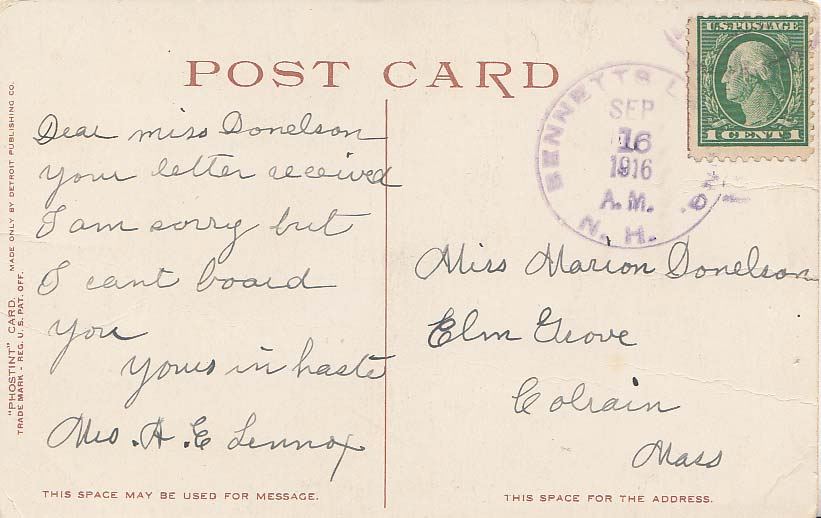 POST CARD
Dear miss Donelson
your letter received
I am sorry but
I cant board
you
yours in haste
Mrs. H. E Lennox
THIS SPACE MAY BE USED FOR MESSAGE.
"PHOSTINT" CARD. MADE ONLY BY DETROIT PUBLISHING CO.
TRADE MARK - REG. U. S. PAT. OFF.
BENNETTS
SEP
16
1916
A.M.
N. H.
U.S. POSTAGE
1 CENT 1
Miss Marion Donelson
Elm Grove
Colrain
Mass
THIS SPACE FOR THE ADDRESS.